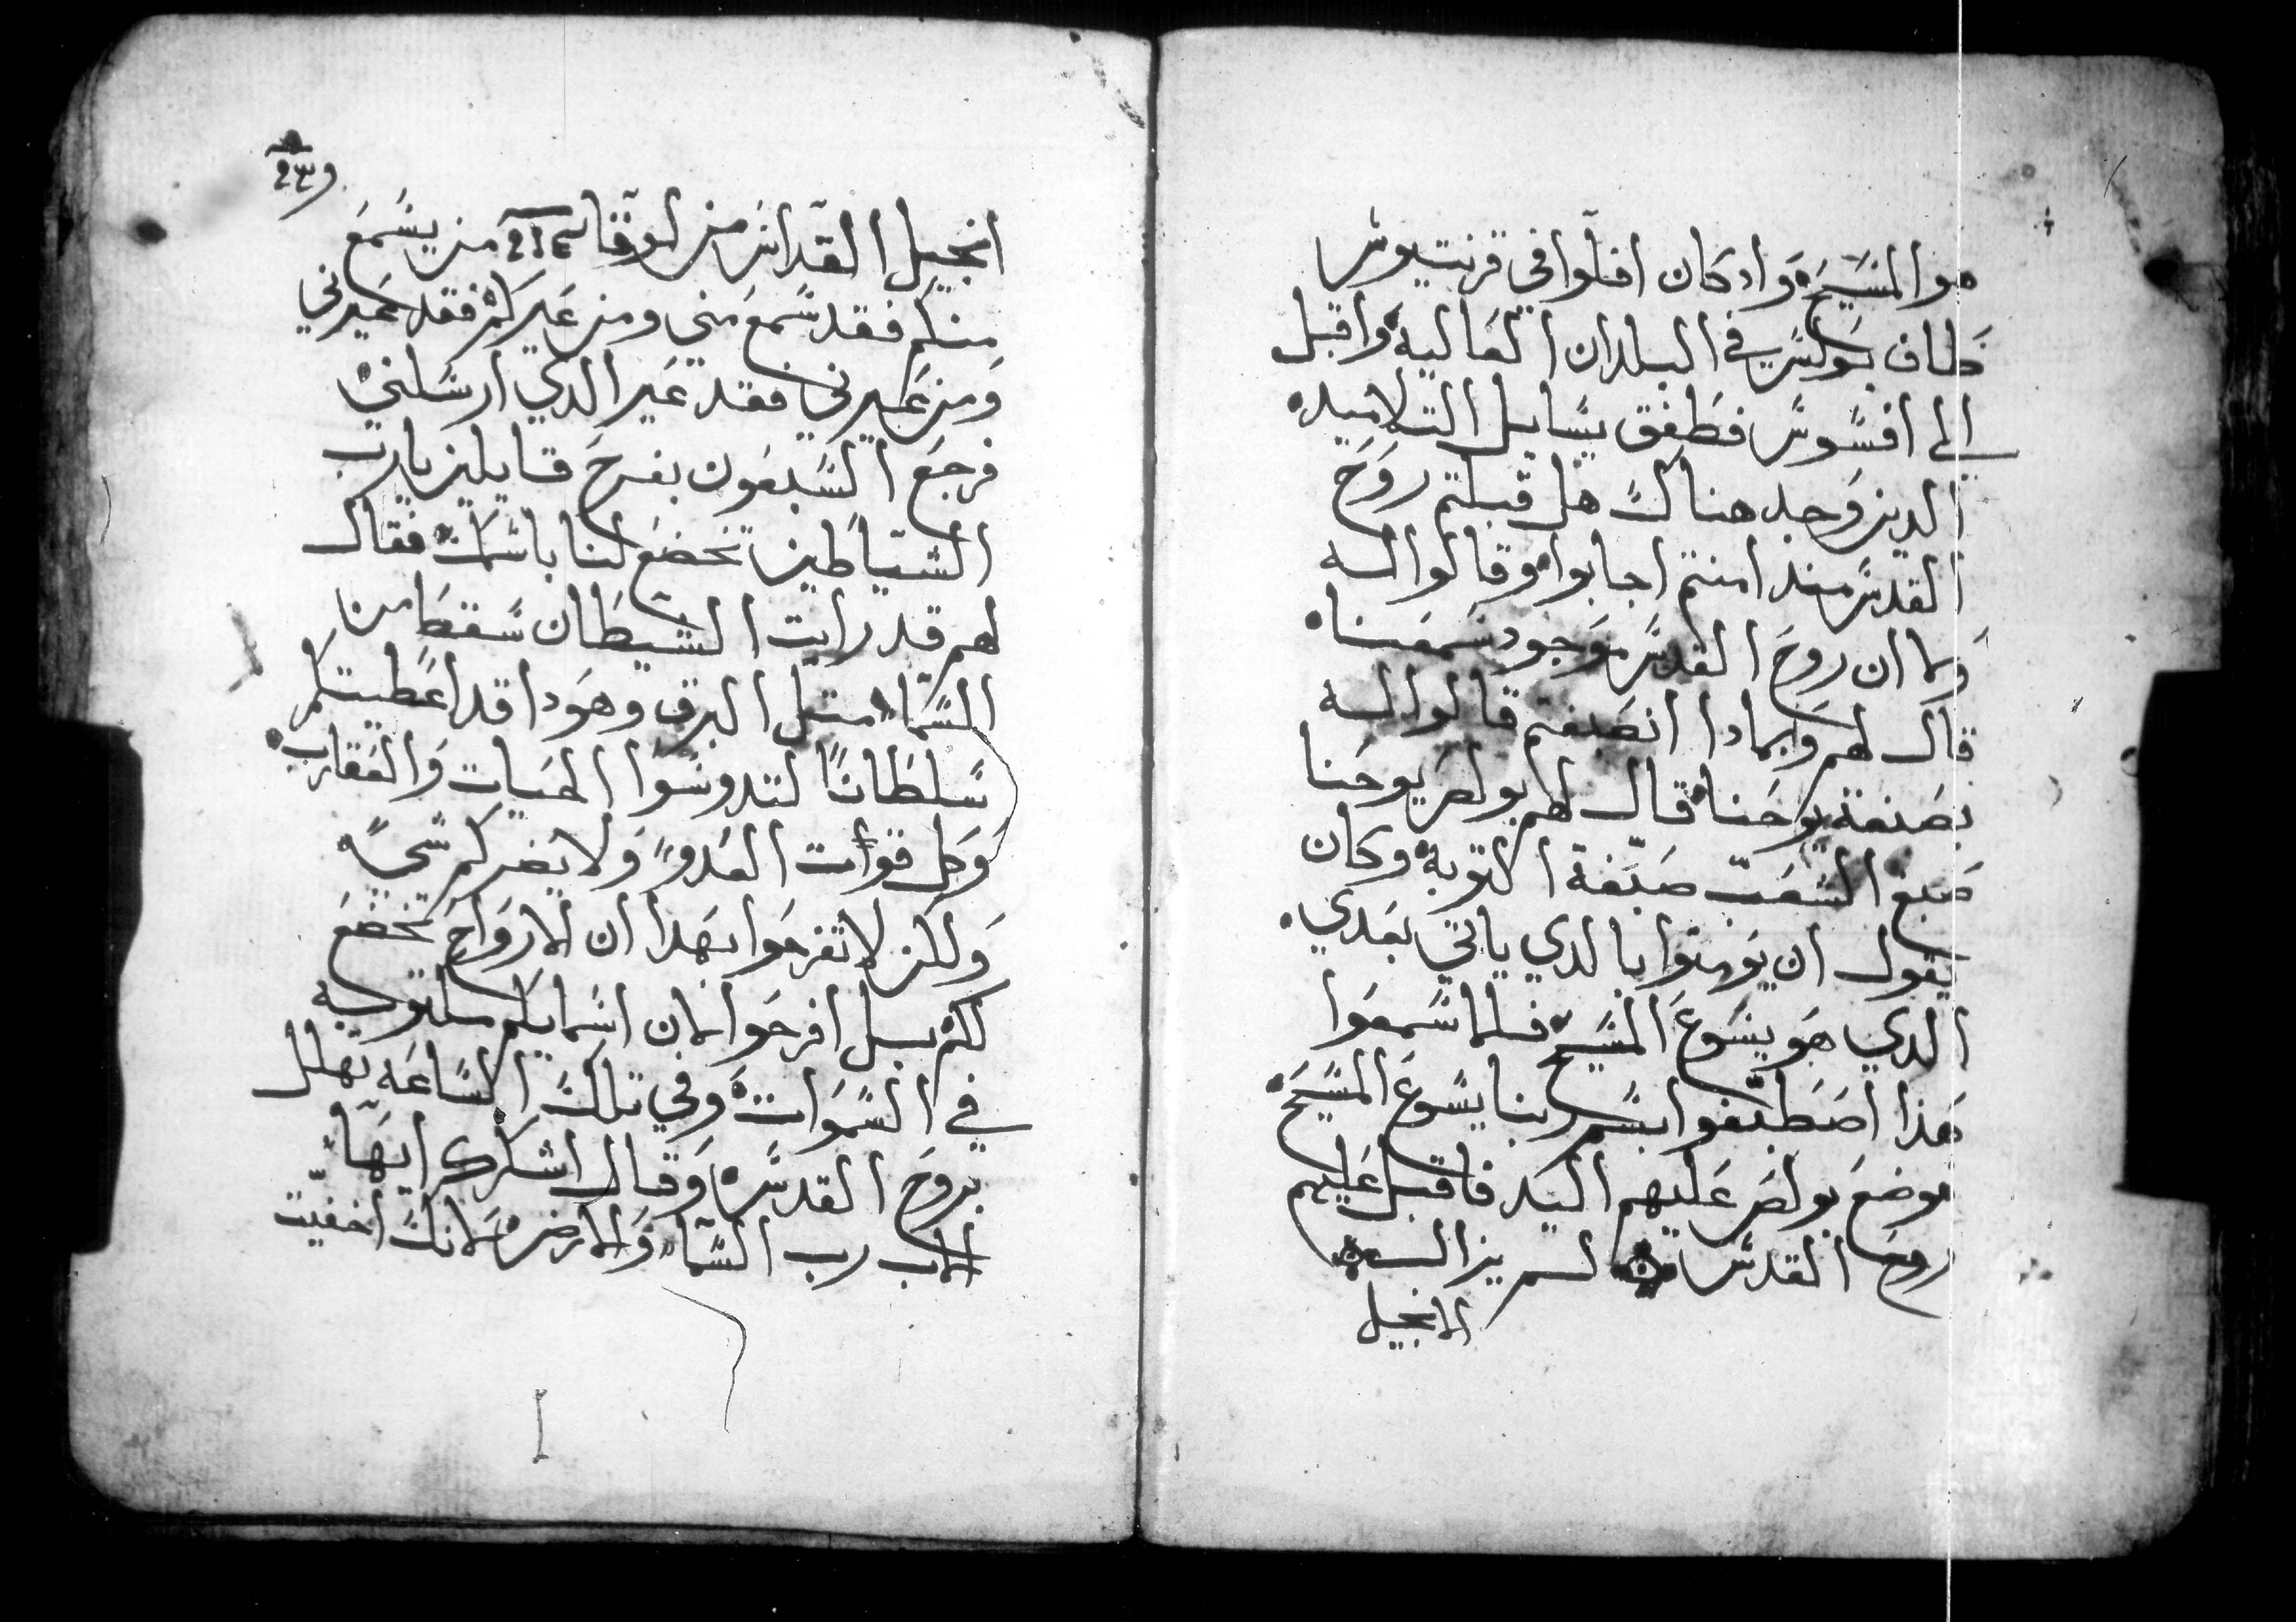 هو المسيح واد كان افلوا في قرنتيوس
طاف بولس في البلدان العاليه واقبل
الى افسوس فطفق يسايل التلاميد
الدين وجد هناك هل قبلتم روح
القدس مند امنتم اجابوا وقالوا له
وما ان روح القدس موجود سمعنا
قال لهم وبمادا انصبغتم قالوا له
بصبغة يوحنا قال لهم بولص يوحنا
صبغ الشعب صبغة التوبه وكان
يقول ان يومنوا بالدي ياتي بعدي
الدي هو يسوع المسيح فلما سمعوا
هذا اصطبغوا بسم ربنا يسوع المسيح
فوضع بولص عليهم اليد فاقبل عليهم
روح القدس لم يزال
الانجيل
انجيل القداس من لوقا من يسمع
منكم فقد سمع مني ومن غيركم فقد غيرني
ومن غيرني فقد غير الدي ارسلني
فرجع السبعون بفرح قايلين يا رب
الشياطين تخضع لنا باسمك فقال
لهم قد رايت الشيطان سقط من
السماء متل البرق وهودا قد اعطيتكم
سلطانا لتدوسوا الحيات والعقارب
وكل قوات العدو ولا يضركم شي
ولكن لا تفرحوا بهدا ان الارواح تخضع
لكم بل افرحوا لان اسمايكم مكتوبه
في السموات وفي تلك الساعه تهلل
بروح القدس وقال اشكرك ايها
الاب رب السماء والارض لانك اخفيت